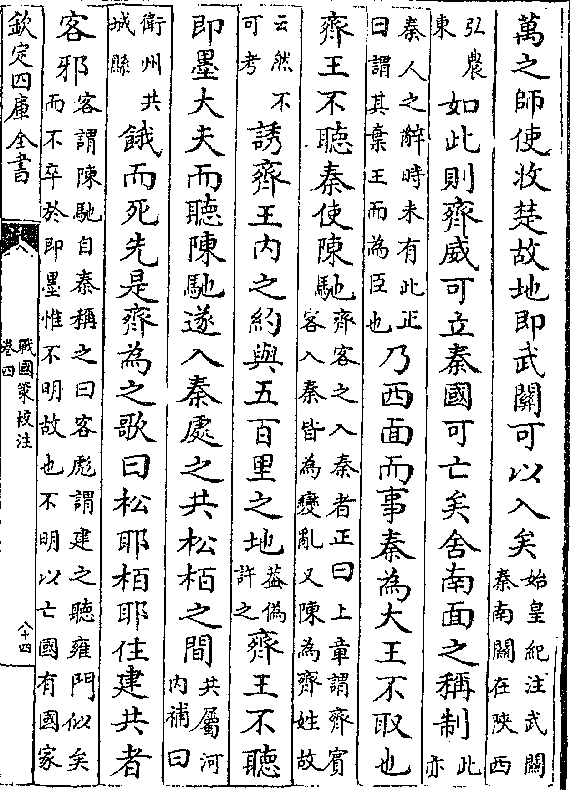 萬之師使收楚故地即武關可以入矣始皇紀注武關秦南關在陜西
弘農東如此則齊威可立秦國可亡矣舍南面之稱制此亦
秦人之辭時未有此正曰謂其棄王而為臣也乃西面而事秦為大王不取也
齊王不聽秦使陳馳齊客之入秦者正曰上章謂齊賓客入秦皆為變亂又陳為齊姓故
云然不可考誘齊王内之約與五百里之地葢偽許之齊王不聽
即墨大夫而聽陳馳遂入秦處之共松栢之間共屬河内補曰
衛州共城縣餓而死先是齊為之歌曰松耶栢耶住建共者
客邪客謂陳馳自秦稱之曰客彪謂建之聽雍門似矣而不卒於即墨惟不明故也不明以亡國有國家
欽定四庫全書
戰國策校注
卷四
八十四